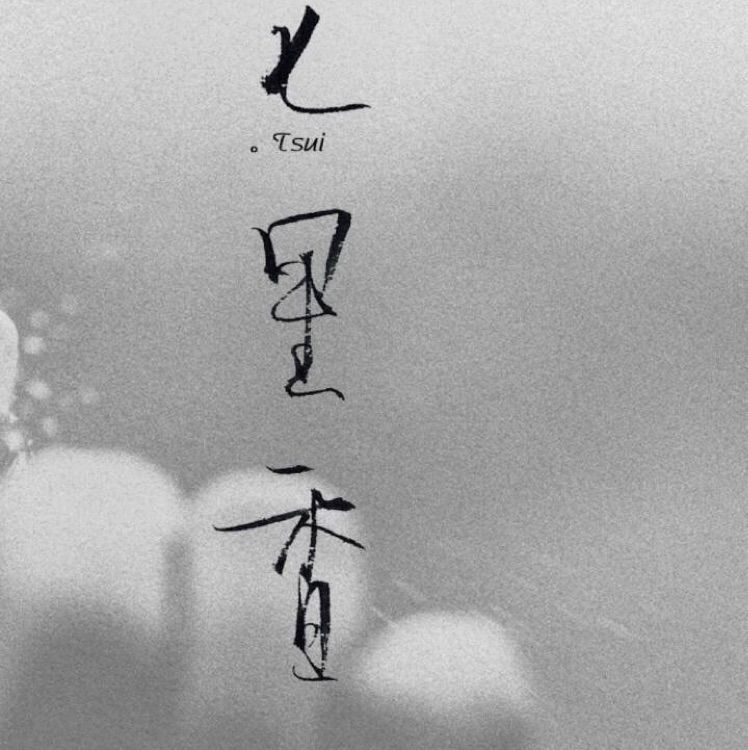 七
。Tsui
里
香